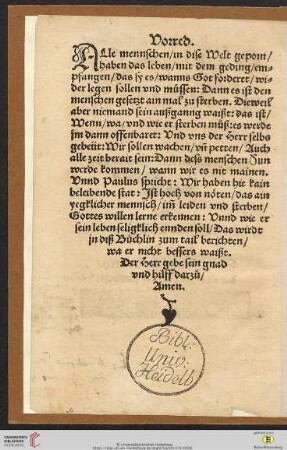 Vorred.
ALle mennschen/in dise Welt geporn/
haben das leben/mit dem geding/em-
pfangen/das sy es/wanns Got forderet/wi-
der legen sollen vnd müssen: Dann es ist den
menschen gesetzt ain mal zu sterben. Dieweil
aber niemand sein außganng waißt: das ist/
Wenn/wa/vnd wie er sterben müß: es werde
jm dann offenbaret: Vnd vns der Herr selbs
gebeüt: Wir sollen wachen/vñ petten/Auch
alle zeit berait sein: Dann deß menschen Sun
werde kommen/wann wir es nit mainen.
Vnnd Paulus spricht: Wir haben hie kain
beleibende stat: Ist hoch von nöten/das ain
yegklicher mennsch/im̃ leiden vnd sterben/
Gottes willen lerne erkennen: Vnnd wie er
sein leben seligklich ennden soll/Das wirdt
jn diß Büchlin zum tail berichten/
wa er nicht bessers waißt.
Der Herr gebe sein gnad
vnd hilff darzü/
Amen.
Bibl:
Univ:
Heidelb